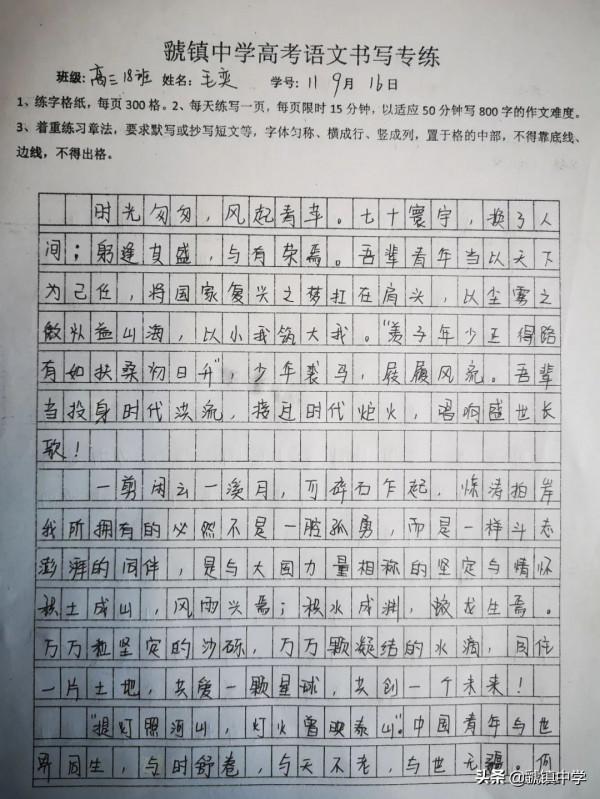 虢镇中学高考语文书写专练
班级:高三18班 姓名:毛奕 学号:11 9月16日
1、练字格纸，每页300格。2、每天练写一页，每页限时15分钟，以适应50分钟写800字的作文难度。
3、着重练习章法，要求默写或抄写短文等，字体匀称、横成行、竖成列，置于格的中部，不得靠底线、
边线，不得出格。
时光匆匆，风起青苹。七十寰宇，换了人
间；躬逢其盛，与有荣焉。吾辈青年当以天下
为己任，将国家复兴之梦扛在肩头，以尘雾之
微补益山海，以小我筑大我。“羡子年少正得路
有如扶桑初日升”，少年裘马，屐履风流。吾辈
当投身时代洪流，接过时代炬火，唱响盛世长
歌！
一剪闲云一溪月，可碎石乍起，惊涛拍岸
我所拥有的必然不是一腔孤勇，而是一样斗志
澎湃的同伴，是与大国力量相称的坚定与情怀
积土成山，风雨兴焉；积水成渊，蛟龙生焉。
万万粒坚定的沙砾，万万颗凝结的水滴，同住
一片土地，共爱一颗星球，共创一个未来！
“提灯照河山，灯火曾映泰山”。中国青年与世
界同生，与时舒卷，与天不老，与世无疆。
头条 @虢镇中学